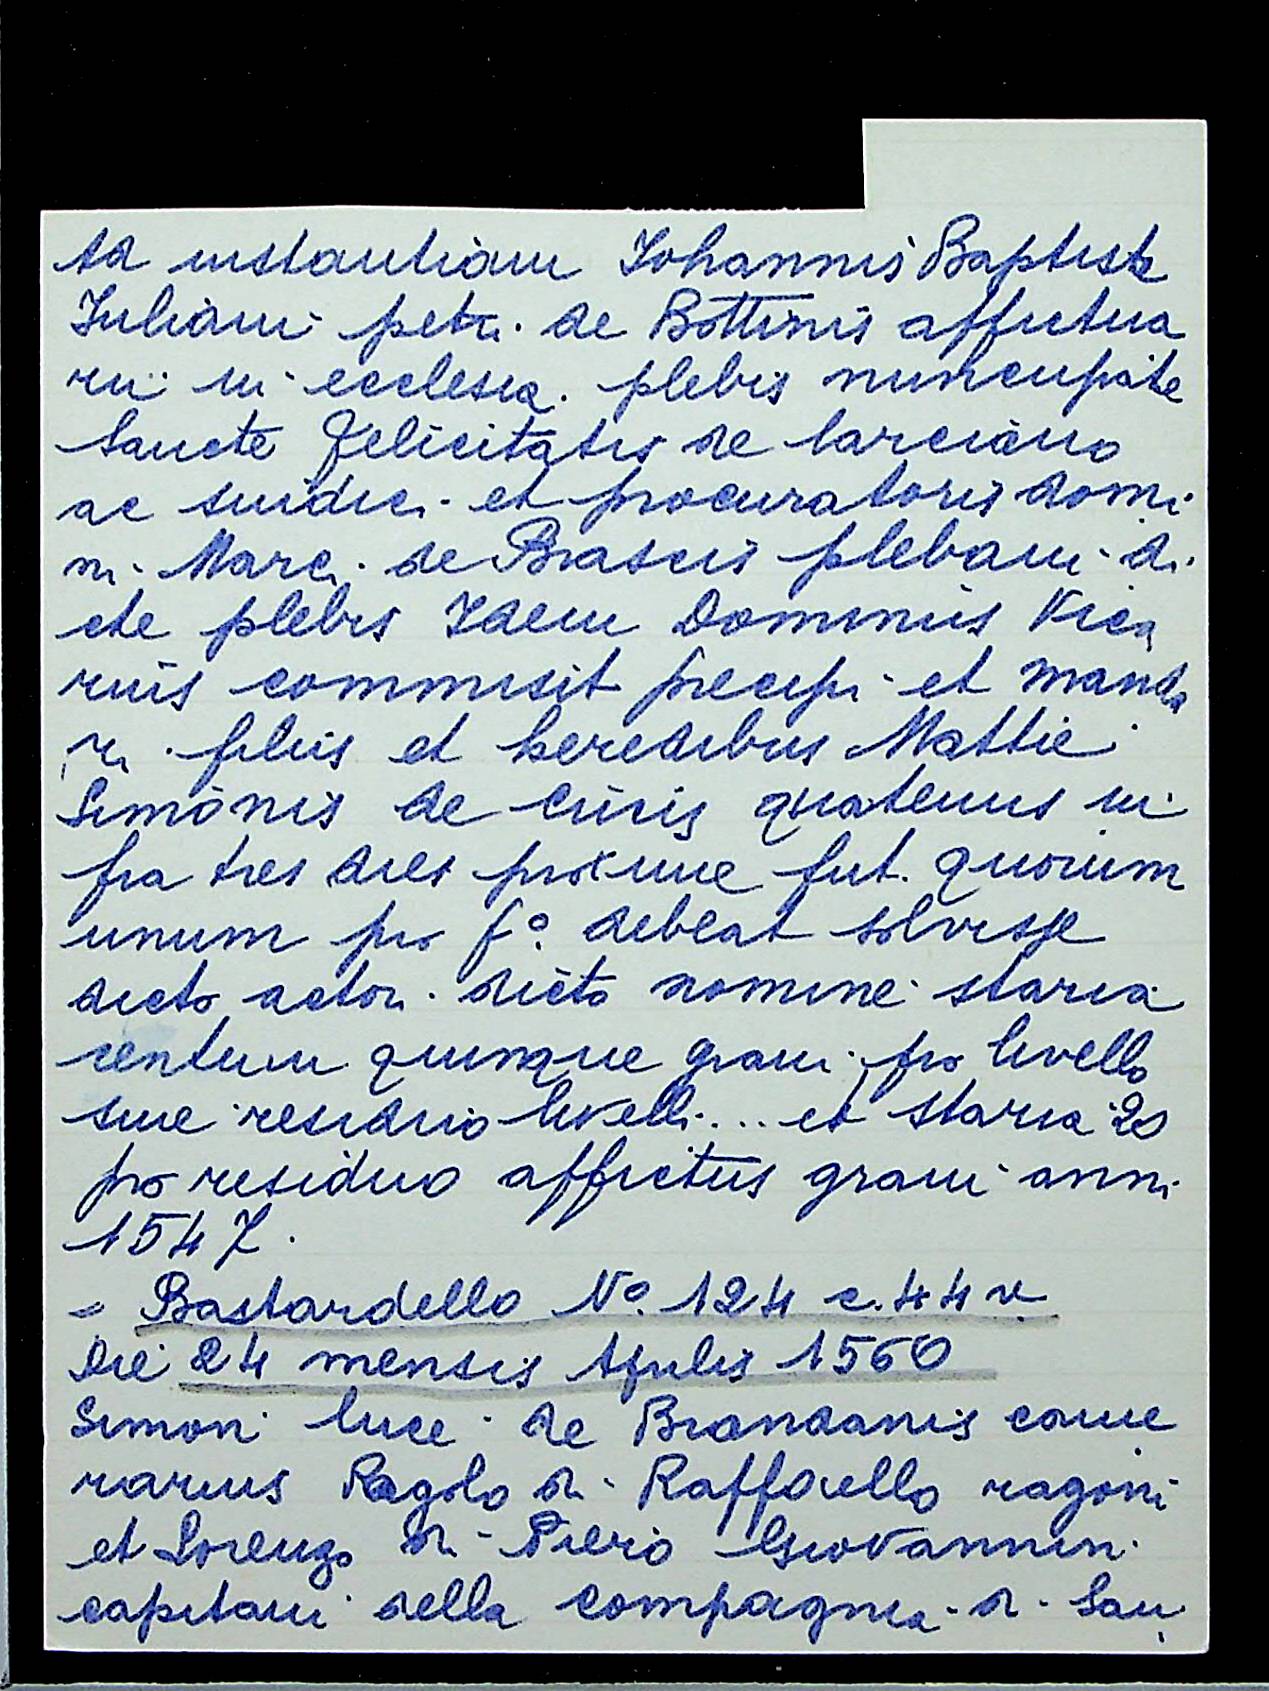 Ad instantiam Johannis Baptiste
Juliani petri de Bottinis affictua
rii in ecclesia plebis nuncupate
Sancte Felicitatis de Larciano
ac sindici et procuratoris domi
ni Marci de Brascis plebani di
cte plebis Idem Dominus Vica
rius commisit precipi et manda
ri filiis et heredibus Mattie
Simonis de Ciris quatenus in
fra tres dies proxime fut. quorum
unum pro p.º debeat solvisse
dicto actori dicto nomine staria
centum quinque grani pro livello
sive residuo livelli ... et staria 20
pro residuo affictus grani anni
1547.
= Bastardello Nº. 124 c. 44 v
Die 24 mensis Aprilis 1560
Simon Luce de Brandanis came
rarius Ragolo di Raffaello ragoni
et Lorenzo di Piero Giovannini
capitani della compagnia di San